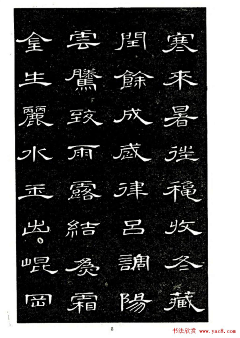 寒來暑往穐收冬藏
閏餘成歲律呂調陽
雲騰致雨露結為霜
金生麗水玉出崐岡
8
书法欣赏 www.yac8.com